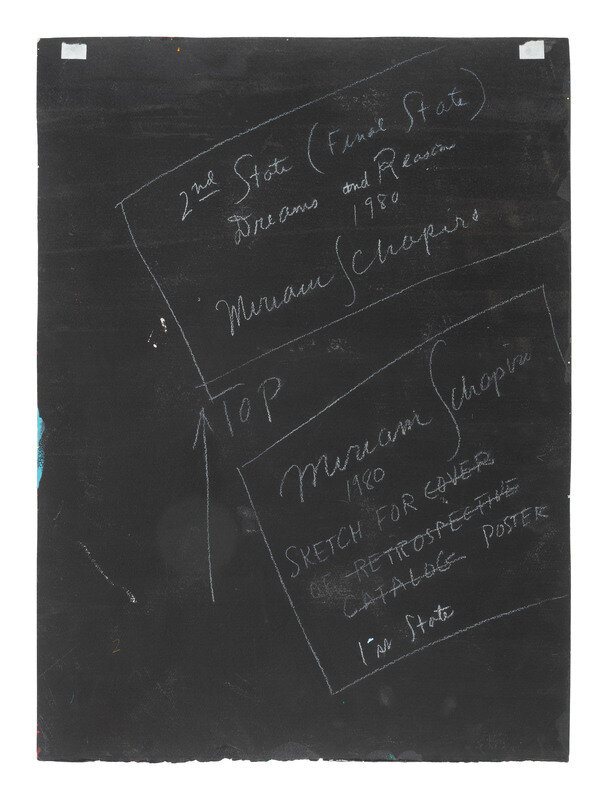 2nd State (Final State)
Dreams and Reason
1980
Miriam Schapiro
TOP
Miriam Schapiro
1980
SKETCH FOR COVER
OF RETROSPECTIVE
CATALOG POSTER
1st State
2